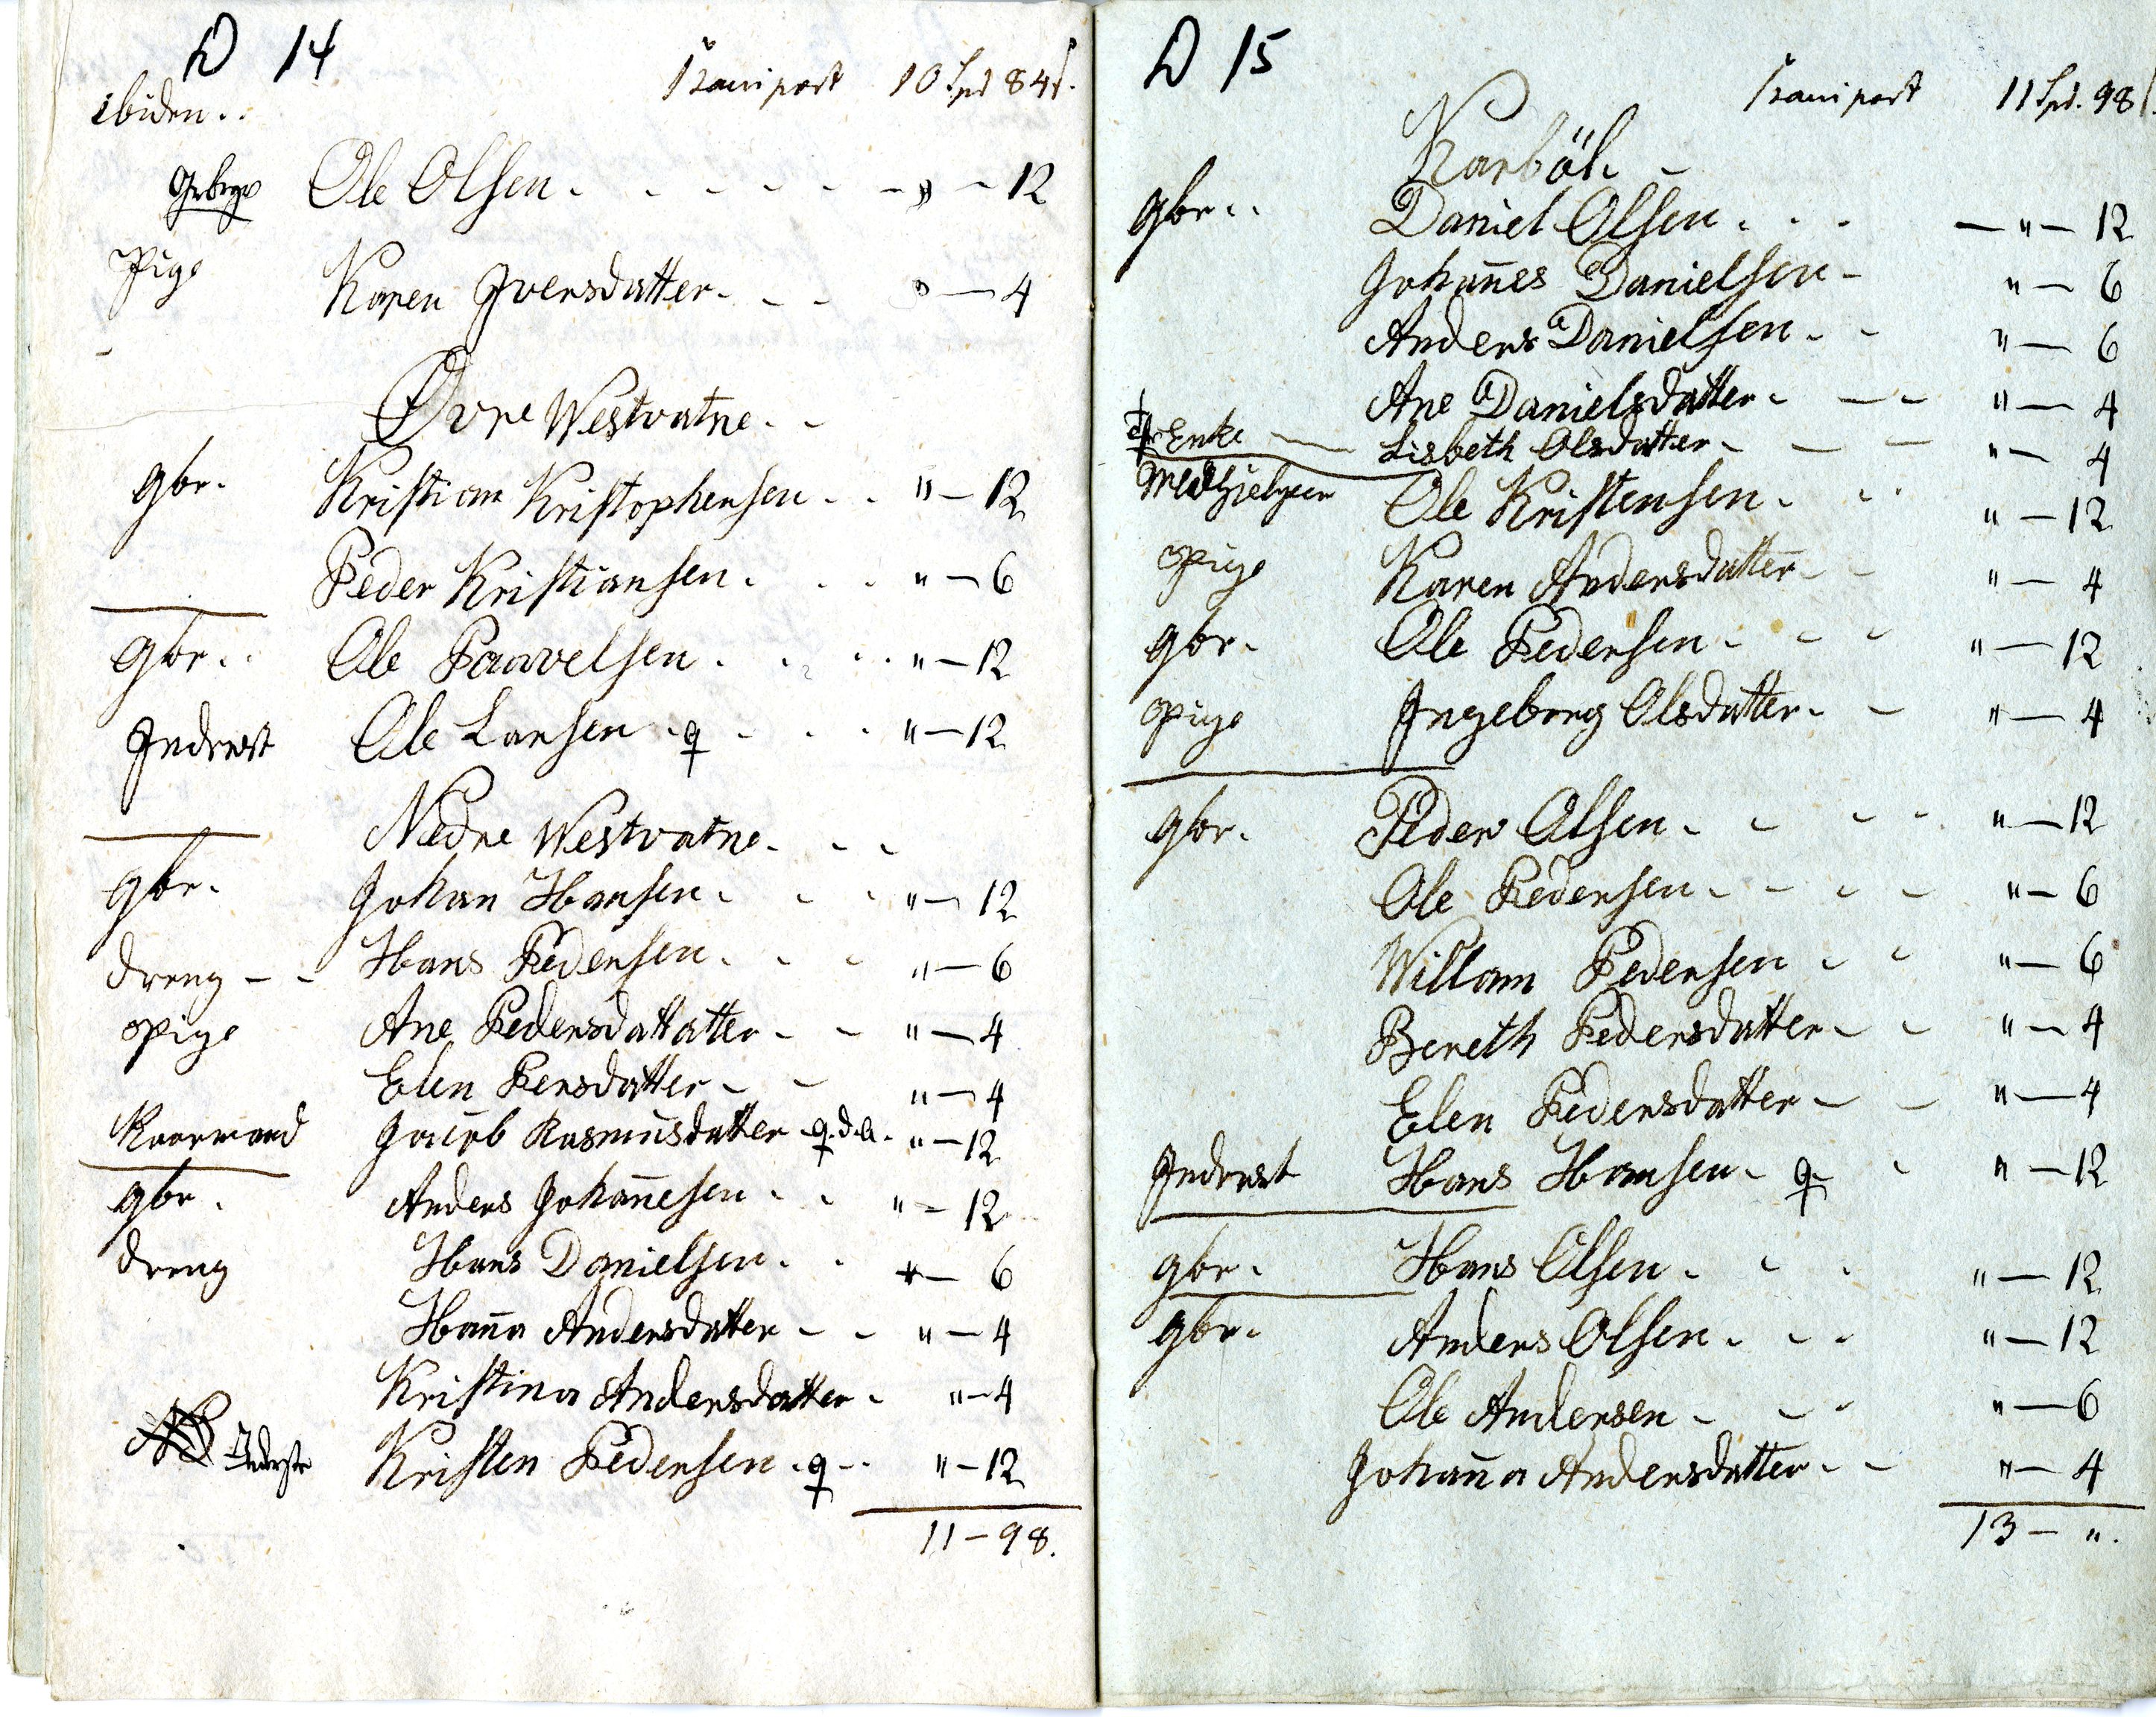 D 14
Transport 10 Spd 84 s.
ibiden..
Gbrgr Ole Olsen - - - - - - " - 12
Pige Karen Iversdatter - - - " - 4
Øvre Westvatne - -
Gbr. Kristian Kristophersen - - " - 12
Peder Kristiansen - - - " - 6
Gbr.. Ole Paavelsen - - - - " - 12
Inderst Ole Larsen - q - - - " - 12
Nedre Westvatne - - -
Gbr. Johan Hansen - - - " - 12
Dreng - - Hans Pedersen - - - " - 6
Pige Ane Pedersdattatter - - " - 4
Elen Persdatter - - " - 4
Kaarmand Jacob Rasmusdatter - q. d. a. " - 12
Gbr. Anders Johan̄esen - - " - 12
Dreng Hans Danielsen - - " - 6
Han̄a Andersdatter - - " - 4
Kristina Andersdatter - " - 4
Inderste Kristen Pedersen - q - - " - 12
11 - 98.
D 15
Transport 11 Spd. 98
Karböl. -
Gbr.. Daniel Olsen - - - - " - 12
Johan̄es Danielsen - " - 6
Anders Danielsen - - " - 6
Ane Danielsdatter - - - " - 4
q Enke - Lisbeth Olsdatter - - - " - 4
Medhjelper Ole Kristensen - - - " - 12
Pige Karen Andersdatter - - " - 4
Gbr. Ole Pedersen - - - " - 12
Pige Ingeborg Olsdatter - - " - 4
Gbr. Peder Olsen - - - - " - 12
Ole Pedersen - - - - " - 6
Willam Pedersen - - " - 6
Bereth Pedersdatter - - " - 4
Elen Pedersdatter - - " - 4
Inderst Hans Hansen - q - - " - 12
Gbr. Hans Olsen - - - " - 12
Gbr. Anders Olsen - - - " - 12
Ole Andersen - - - " - 6
Johan̄a Andersdatter - - " - 4
13 - ".